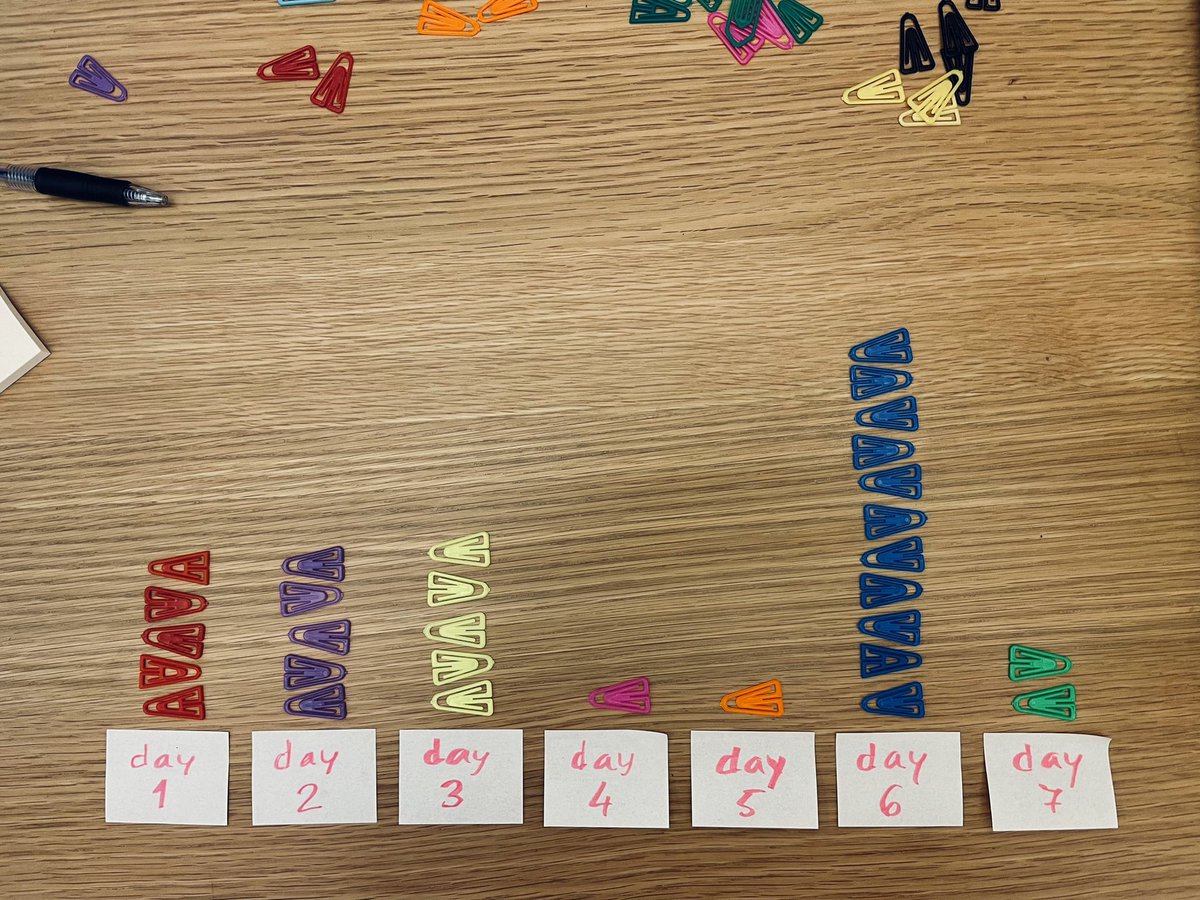 day
1
day
2
day
3
day
4
day
5
day
6
day
7